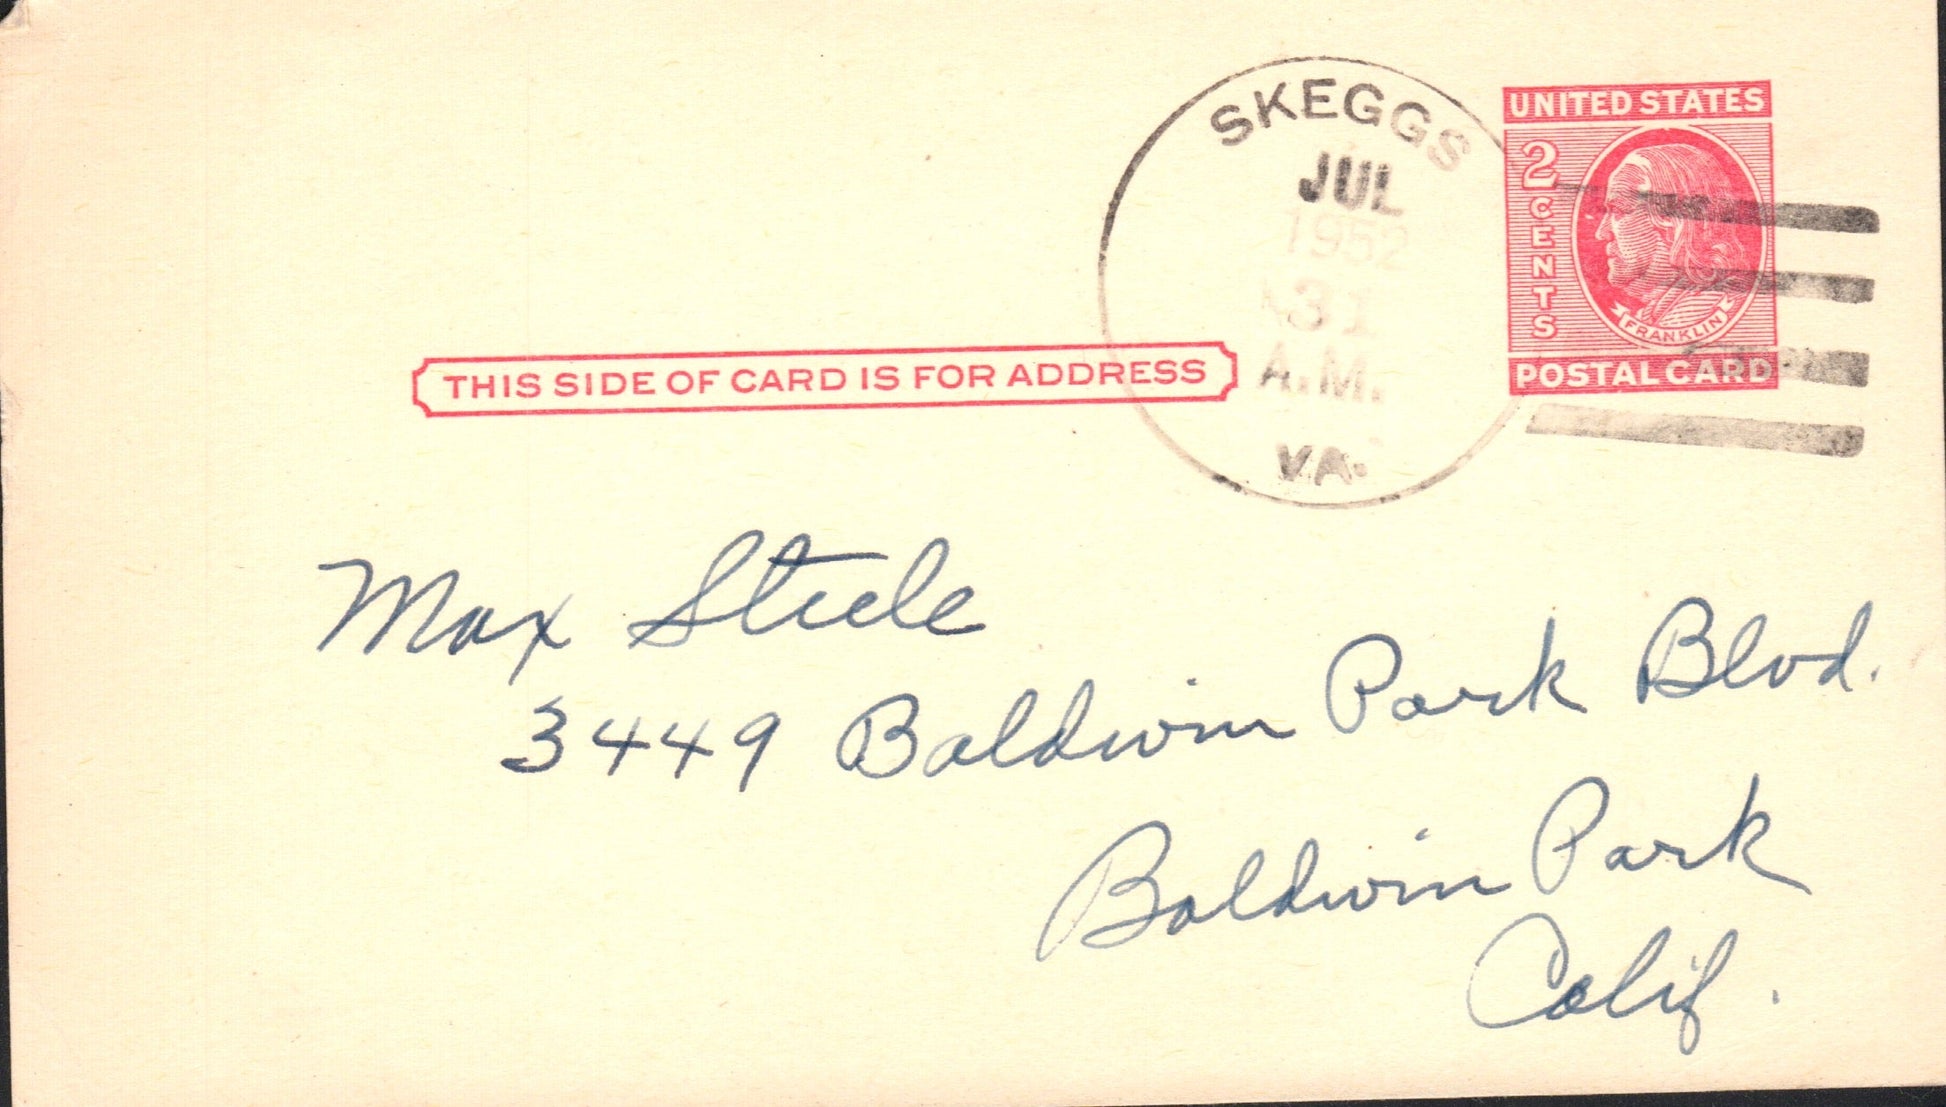 SKEGGS
JUL
1952
31
A.M.
VA.
UNITED STATES
2 CENTS
FRANKLIN
POSTAL CARD
THIS SIDE OF CARD IS FOR ADDRESS
Max Steele
3449 Baldwin Park Blvd.
Baldwin Park
Calif.